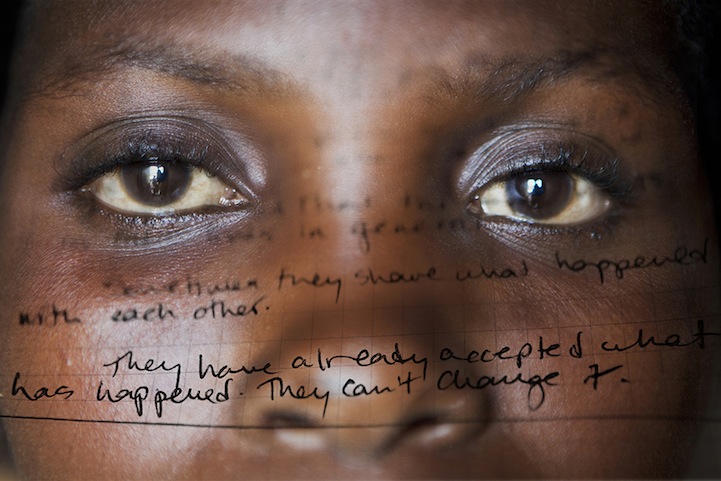 in general
Sometimes they share what happened
with each other.
They have already accepted what
has happened. They can't change it.